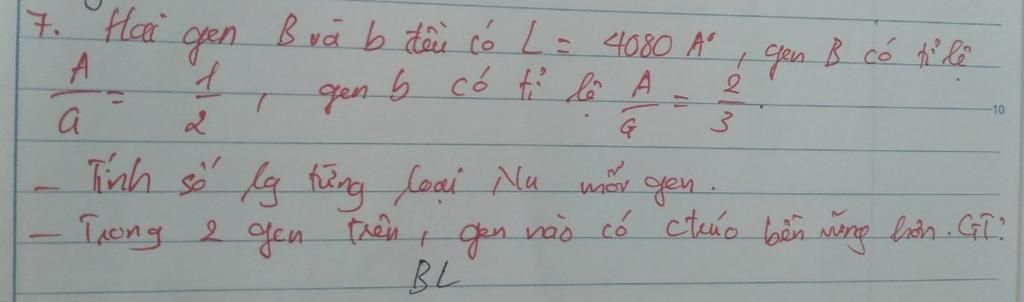 7. Hai gen B và b đều có L = 4080 A°, gen B có tỉ lệ
A/G = 1/2, gen b có tỉ lệ A/G = 2/3.
- Tính số lg từng loại Nu mỗi gen.
- Trong 2 gen trên, gen nào có ctrúc bền vững hơn. GT?
BL
10